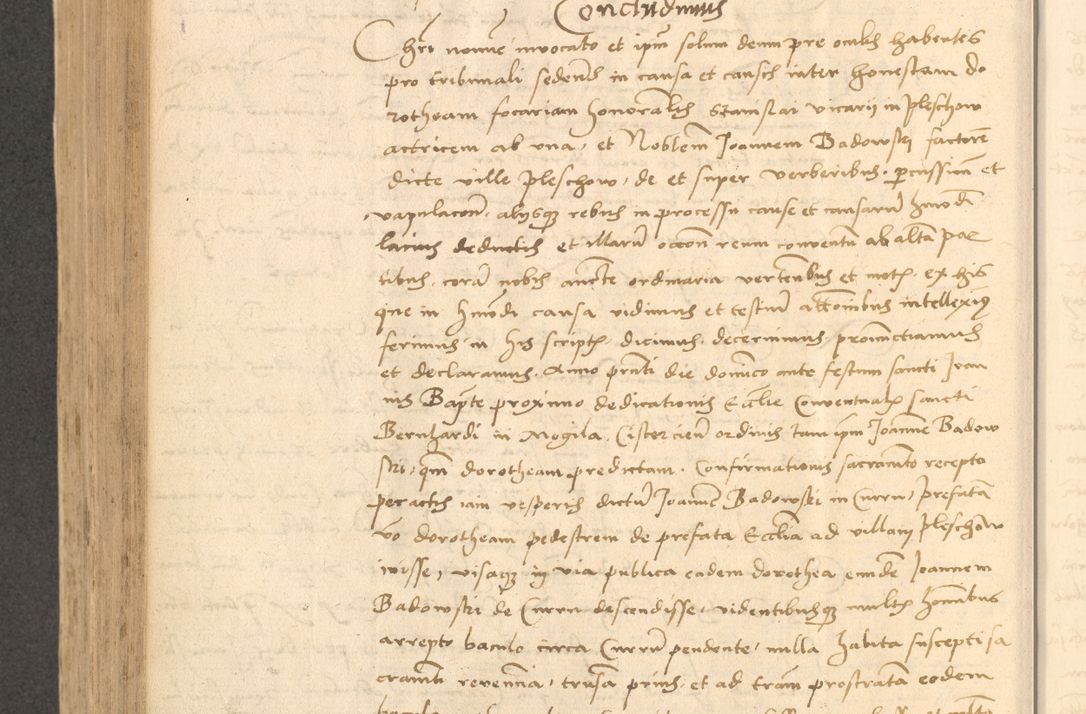 Concludimus
Chri nomine invocato et ipm solum deum pre oculis habentes
pro tribunali sedend in causa et causis inter honestam do
rotheam focariam honorabilis Stanislai vicarii in Pleschow
actricem ab una, et Nobilem Joannem Badowski factorem
dicte ville Pleschow, de et super verberibus, percussium et
vapulacon, aliisque rebus in processu cause et causaru hmodi
lacius deductis et illaru occon reum conventu ab alta par
tibus, cora nobis aucte ordinaria vertentibus et motis, ex his
que in hmodi causa vidimus et testiu attonibus intelleximus
ferimus in his scriptis, dicimus, decernimus, pronunctiamus
et declaramus, Anno prnti die dominico ante festum sancti Joan
nis Baptte proximo dedicationis Ecclie Conventualis sancti
Bernhardi in Mogila, Cistercien ordinis tam ipm Joannem Badow
ski, qm dorotheam predictam, Confirmationis sacramento recepto
peractis iam vesperis dictu Joannem Badowski in Curru, prefata
vo dorotheam pedestrem de prefata Ecclia ad villam Pleschow
ivisse, visaque in via publica eadem dorothea eunde Joannem
Badowski de Curru descendisse, videntibusque multis hominibus
arrepto baculo circa Curru pendente, nulla habita suscepti sa
cramti reverentia, trusa prius et ad terram prostrata eodem